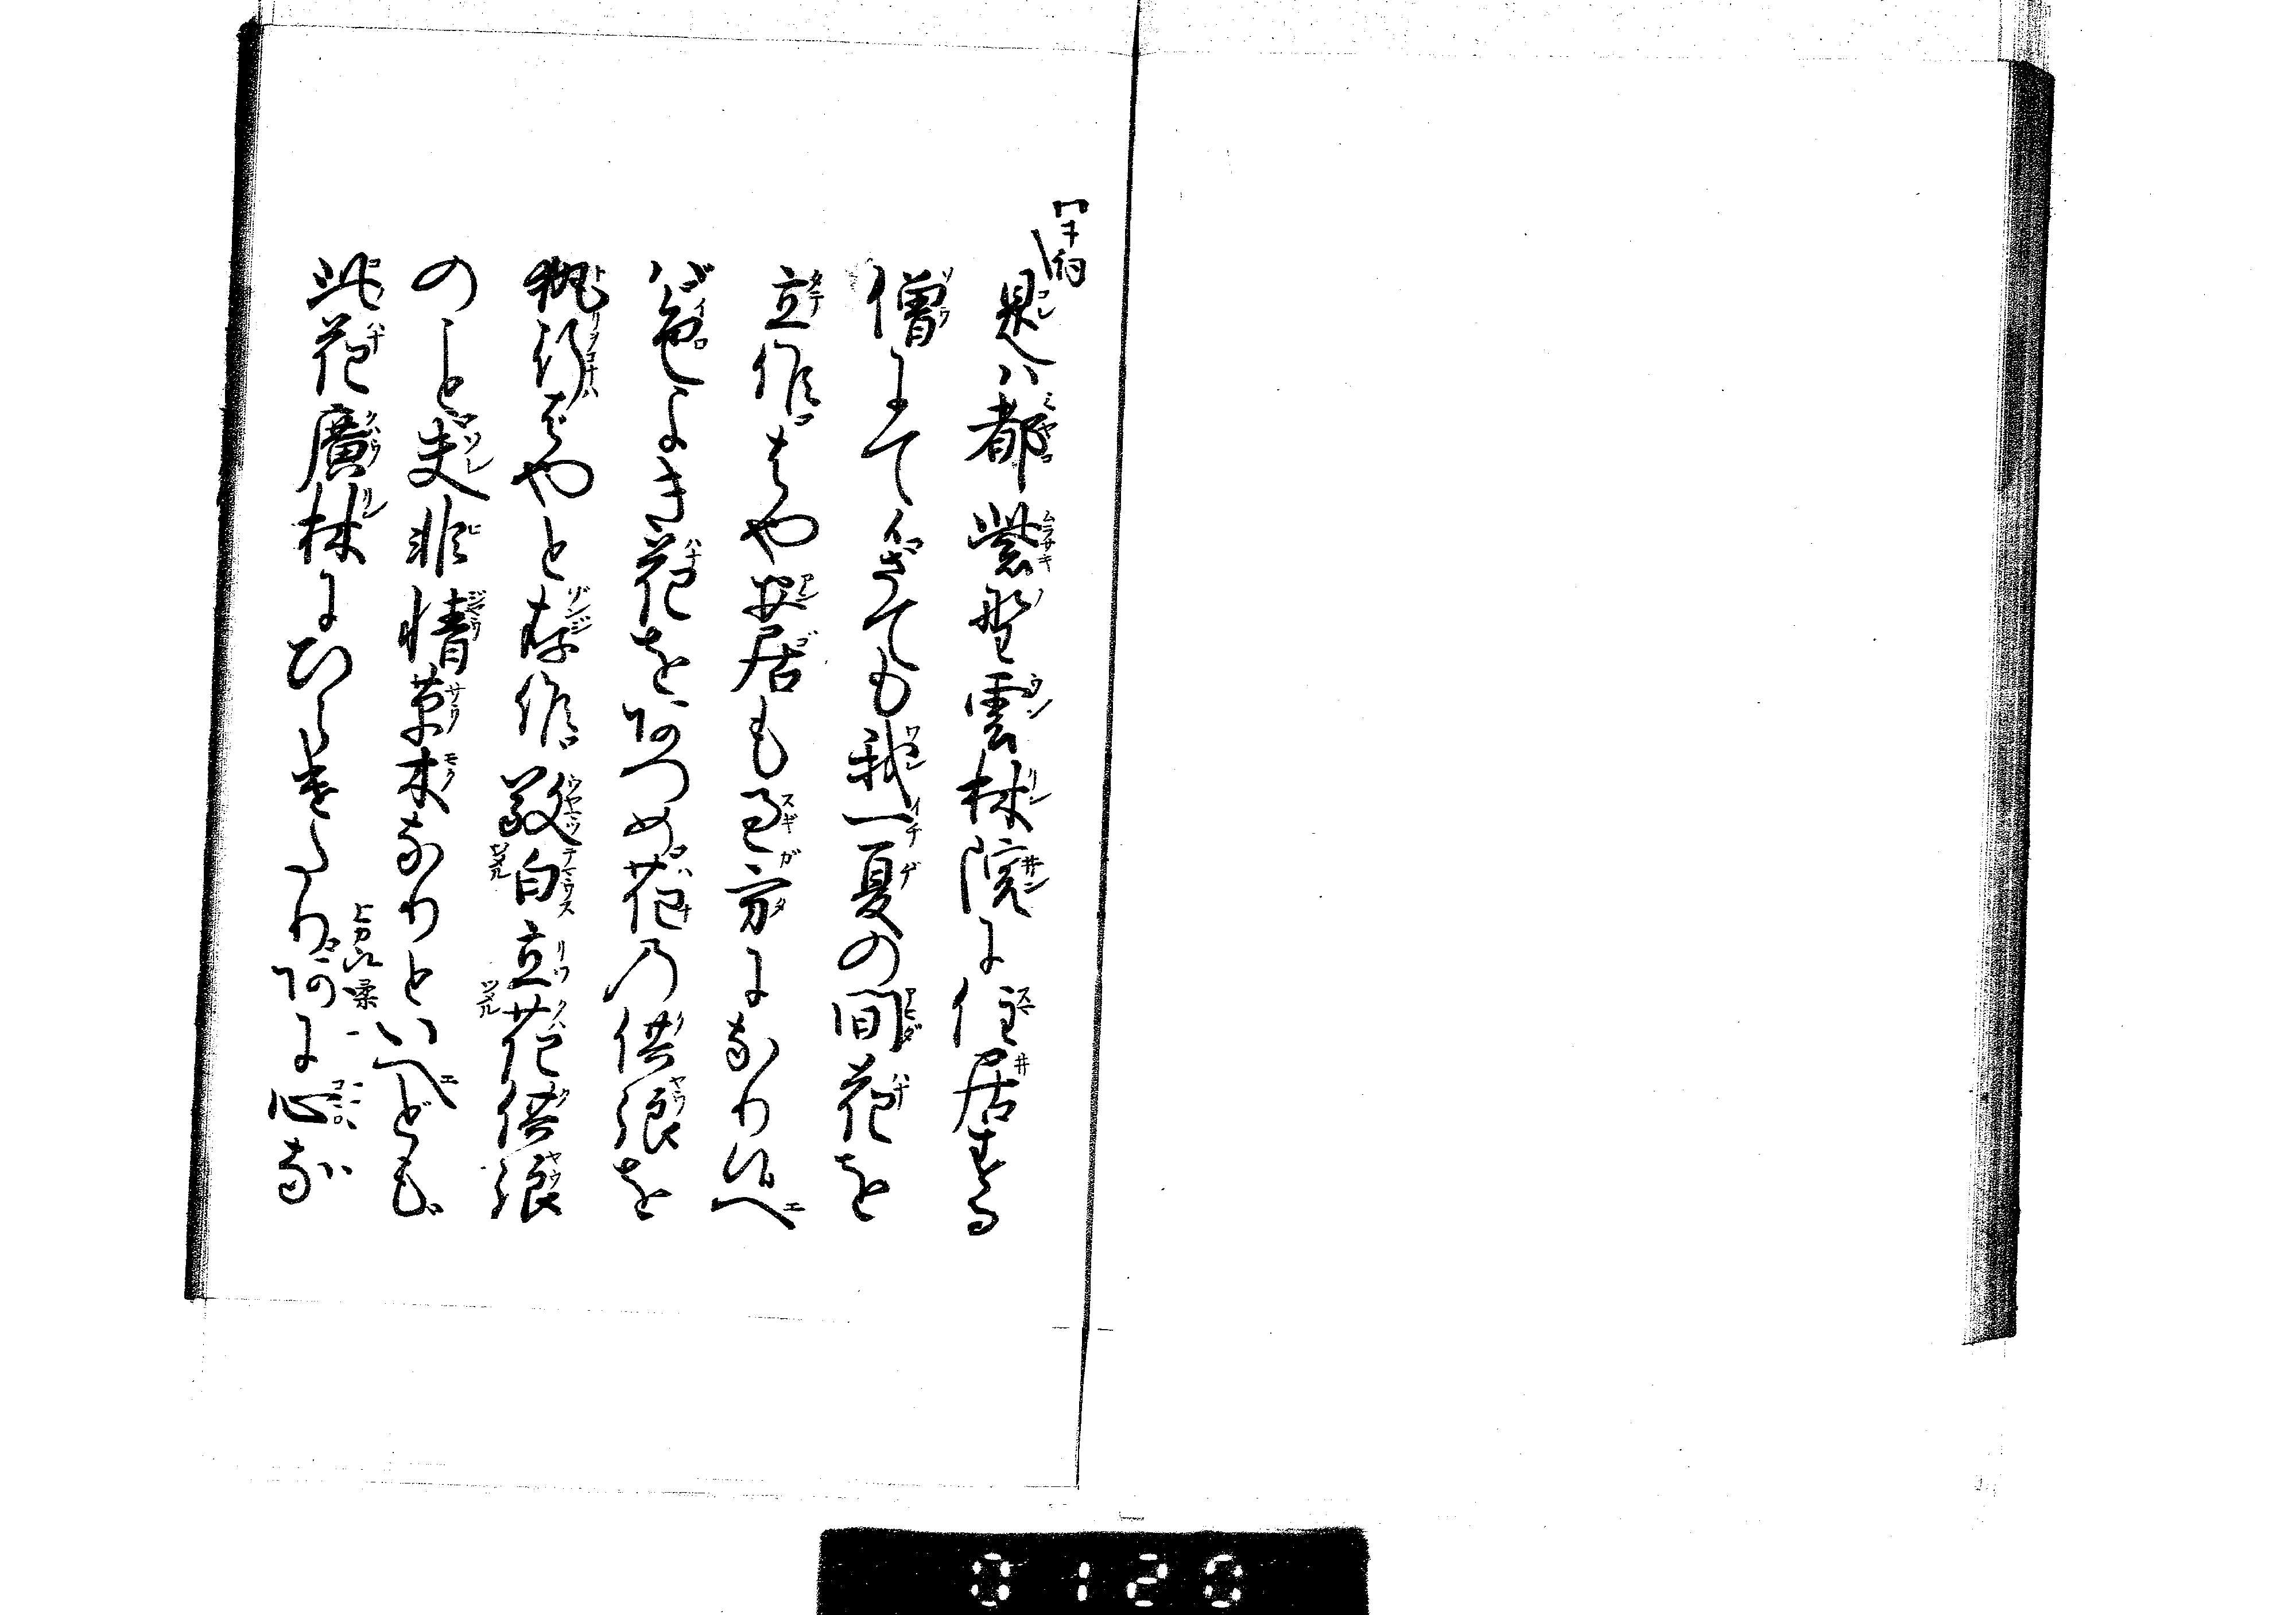 ワキ詞
是ハ都紫野雲林院に住居する
僧にて候さても我一夏の間花を
立候はや安居も過方になり候へ
バ色よき花をあつめ花乃供養を
執行ばやと存候 敬白立花供養
のこと夫非情草木なりといへども
此花廣林にひらけたりあに心な